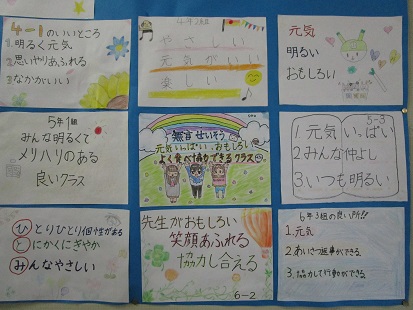 4-1のいいところ
1.明るく元気
2.思いやりあふれる
3.なかがいい
4年2組
やさしい
元気がいい
楽しい
元気
明るい
おもしろい
5年1組
みんな明るくて
メリハリのある
良いクラス
無言せいそう
元気いっぱい、おもしろい
よく食べ協力できるクラス
5-3
1.元気いっぱい
2.みんな仲よし
3.いつも明るい
ひとりひとり個性がある
とにかくにぎやか
みんなやさしい
先生がおもしろい
笑顔あふれる
協力し合える
6-2
6年3組の良い所!!
1.元気
2.あいさつ返事ができる
3.協力して行動ができる